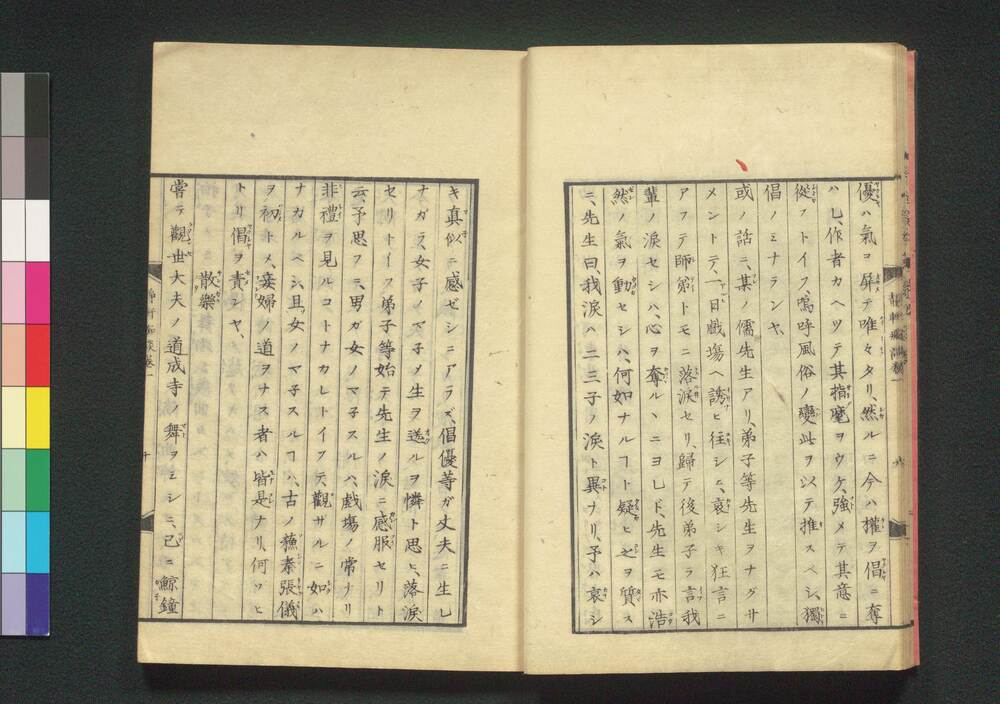 優ハ氣コ屏テ唯々タリ、然ルニ今ハ權ヲ倡ニ奪
ハレ、作者カヘツテ其指麾ヲウケ、強メテ其意ニ
從フトイフ、嗚呼風俗ノ變此ヲ以テ推スベシ、獨
倡ノミナランヤ、
或ノ話ニ、某ノ儒先生アリ、弟子等先生ヲナグサ
メントテ、一日戲場ヘ誘ヒ往シニ、哀シキ狂言ニ
アフテ師弟トモニ落淚セリ、歸テ後弟子ラ言我
輩ノ淚セシハ、心ヲ奪ルヽニヨレド、先生モ亦浩
然ノ氣ヲ動セシハ、何如ナルヿト疑ヒ之ヲ質ス
ニ、先生曰、我淚ハ二三子ノ淚ト異ナリ、予ハ哀シ
キ真似ニ感ゼシニアラズ、倡優等ガ丈夫ニ生レ
ナガラ、女子ノマネメ生ヲ送ルヲ憐ト思ヒ、落淚
セリトイフ弟子等始テ先生ノ淚ニ感服セリト
云、予思フニ、男ガ女ノマ子スルハ、戲場ノ常ナリ
非禮ヲ見ルコトナカレトイフテ、觀ザルニ如ハ
ナカルベシ、且女ノマ子スルヿハ、古ノ蘇秦張儀
ヲ初トメ、妾婦ノ道ヲナス者ハ皆是ナリ、何ソヒ
トリ倡ヲ責ンヤ、
散樂
嘗テ觀世大夫ノ道成寺ノ舞ヲミシニ、已ニ鯨鐘